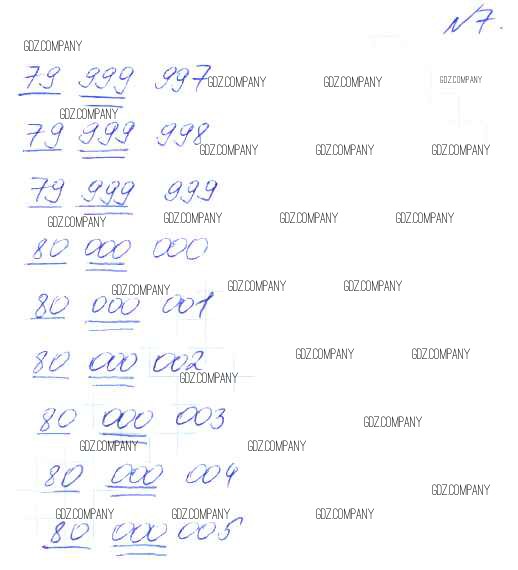 N7.
GDZ.COMPANY
79 999 997 GDZ.COMPANY GDZ.COMPANY GDZ.COMPANY
GDZ.COMPANY
79 999 998 GDZ.COMPANY GDZ.COMPANY GDZ.COMPANY
79 999 999
GDZ.COMPANY GDZ.COMPANY GDZ.COMPANY GDZ.COMPANY
80 000 000
GDZ.COMPANY GDZ.COMPANY GDZ.COMPANY
80 000 001
GDZ.COMPANY GDZ.COMPANY
80 000 002
GDZ.COMPANY
80 000 003 GDZ.COMPANY
GDZ.COMPANY GDZ.COMPANY
80 000 004
GDZ.COMPANY
GDZ.COMPANY GDZ.COMPANY GDZ.COMPANY
80 000 005